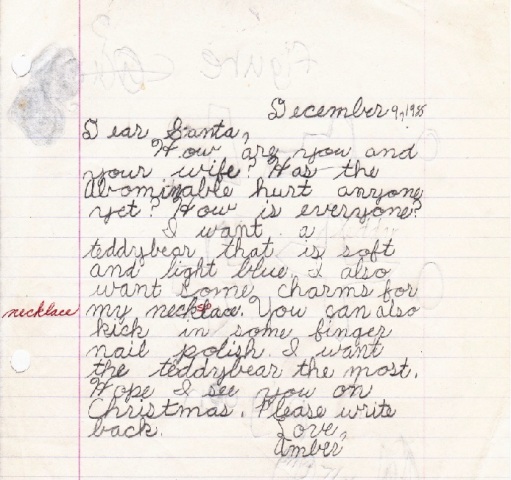 December 9, 1988
Dear Santa,
How are you and
your wife? Has the
Abominable hurt anyone
yet? How is everyone?
I want a
teddybear that is soft
and light blue. I also
want some charms for
necklace my necklace. You can also
kick in some finger
nail polish. I want
the teddybear the most.
Hope I see you on
Christmas. Please write
back.
Love,
Amber